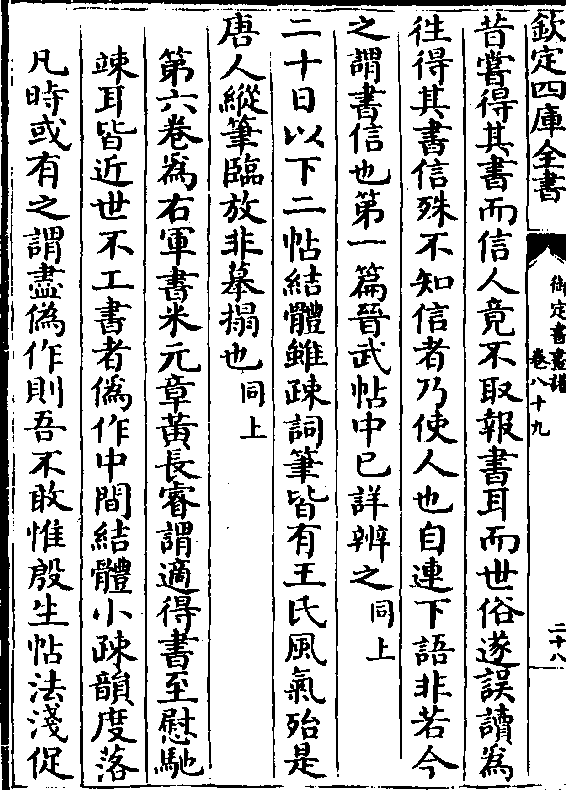 欽定四庫全書
御定書畫譜
卷八十九
二十八
昔嘗得其書而信人竟不取報書耳而世俗遂誤讀為
徃得其書信殊不知信者乃使人也自連下語非若今
之謂書信也第一篇晉武帖中已詳辨之同上
二十日以下二帖結體雖疎詞筆皆有王氏風氣殆是
唐人縱筆臨放非摹搨也同上
第六卷為右軍書米元章黃長睿謂適得書至慰馳
竦耳皆近世不工書者偽作中間結體小疎韻度落
凡時或有之謂盡偽作則吾不敢惟殷生帖法淺促